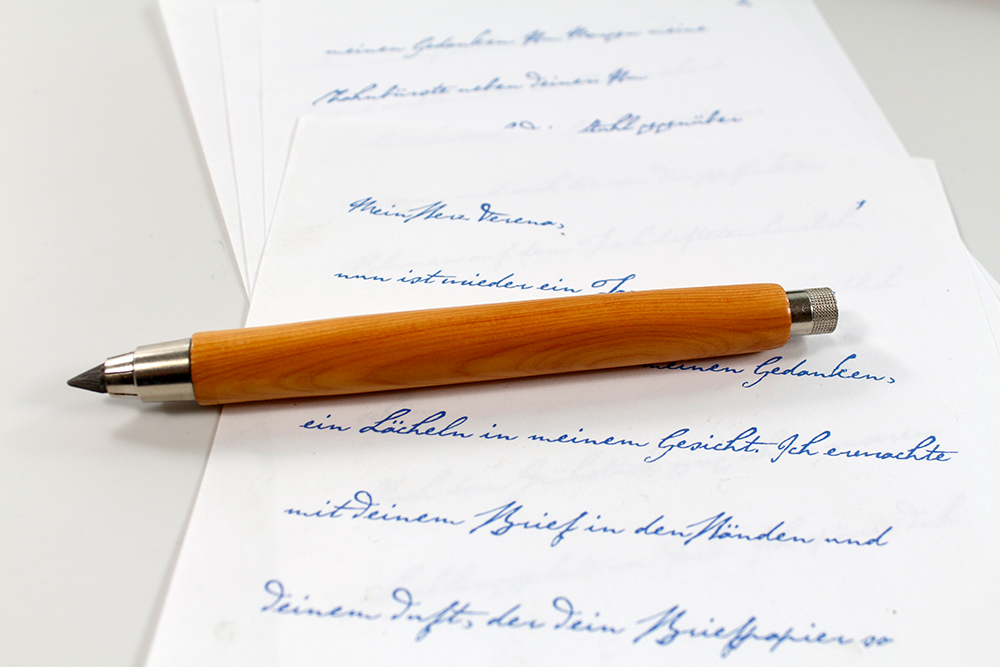 meinen Gedanken
Zahnbürste neben deinen
Stuhl gegenüber
1
Verena,
nun ist wieder ein
meinen Gedanken,
ein Lächeln in meinem Gesicht. Ich erwachte
mit deinem Brief in den Händen und
deinem Duft, der dein Briefpapier so